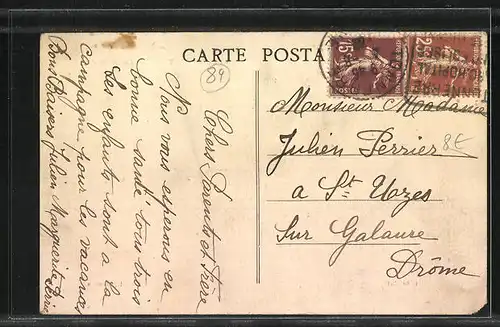 CARTE POSTA
89
Chers Parents et Frère
Nous vous esperons en
bonne santé tous trois
Les enfants sont a la
campagne pour les vacances
Bons Baisers Julien Marguerite
15c
25c
HOPITAL
Monsieur Madame
Julien Perrier
8E
a St Uzes
Sur Galaure
Drôme